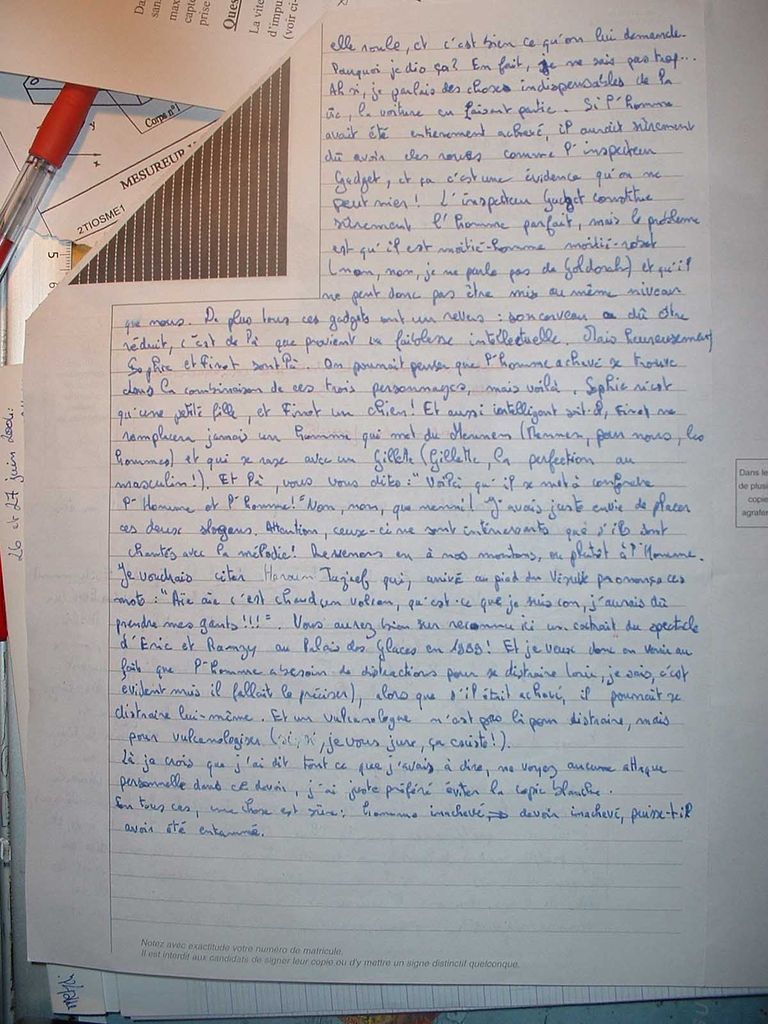 elle roule, et c'est bien ce qu'on lui demande.
Pourquoi je dis ça? En fait, je ne sais pas trop...
Ah si, je parlais des choses indispensables de la
vie, la voiture en faisant partie. Si l'homme
avait été entièrement achevé, il aurait sûrement
dû avoir des roues comme l'inspecteur
Gadget, et ça c'est une évidence qu'on ne
peut nier! L'inspecteur Gadget constitue
sûrement l'homme parfait, mais le problème
est qu'il est moitié-homme moitié-robot
(non, non, je ne parle pas de Goldorak) et qu'il
ne peut donc pas être mis au même niveau
que nous. De plus tous ces gadgets ont un revers : son cerveau a dû être
réduit, c'est de là que provient sa faiblesse intellectuelle. Mais heureusement
Sophie et Finot sont là. On pourrait penser que l'homme achevé se trouve
dans la combinaison de ces trois personnages, mais voilà. Sophie n'est
qu'une petite fille, et Finot un chien! Et aussi intelligent soit-il, Finot ne
remplacera jamais un homme qui met du Mennen (Mennen, pour nous, les
hommes) et qui se rase avec un Gillette (Gillette, la perfection au
masculin!). Et là, vous vous dites: "Voilà qu'il se met à confondre
l'Homme et l'homme!" Non, non, que nenni! J'avais juste envie de placer
ces deux slogans. Attention, ceux-ci ne sont intéressants que s'ils sont
chantés avec la mélodie! Revenons en à nos moutons, ou plutôt à l'Homme.
Je voudrais citer Haroun Tazieff qui, arrivé au pied du Vésuve prononça ces
mots : "Aïe aïe c'est chaud un volcan, qu'est-ce que je suis con, j'aurais dû
prendre mes gants!!!". Vous aurez bien sur reconnu ici un extrait du spectacle
d'Eric et Ramzy au Palais des Glaces en 1999! Et je veux donc en venir au
fait que l'homme a besoin de distractions pour se distraire (oui, je sais, c'est
évident mais il fallait le préciser), alors que s'il était achevé, il pourrait se
distraire lui-même. Et un vulcanologue n'est pas là pour distraire, mais
pour vulcanologiser (si, si, je vous jure, ça existe!).
Là je crois que j'ai dit tout ce que j'avais à dire, ne voyez aucune attaque
personnelle dans ce devoir, j'ai juste préféré éviter la copie blanche.
En tous cas, une chose est sûre: homme inachevé => devoir inachevé, puisse-t-il
avoir été entammé.
Notez avec exactitude votre numéro de matricule.
Il est interdit aux candidats de signer leur copie ou d'y mettre un signe distinctif quelconque.
Dans le
de plusi
copie
agrafer
MESUREUR
2TIOSME1
Corps n°1
x
y
5
6
Da
san
max
capte
prise
Ques
La vite
d'impu
(voir ci-
26 et 27 juin